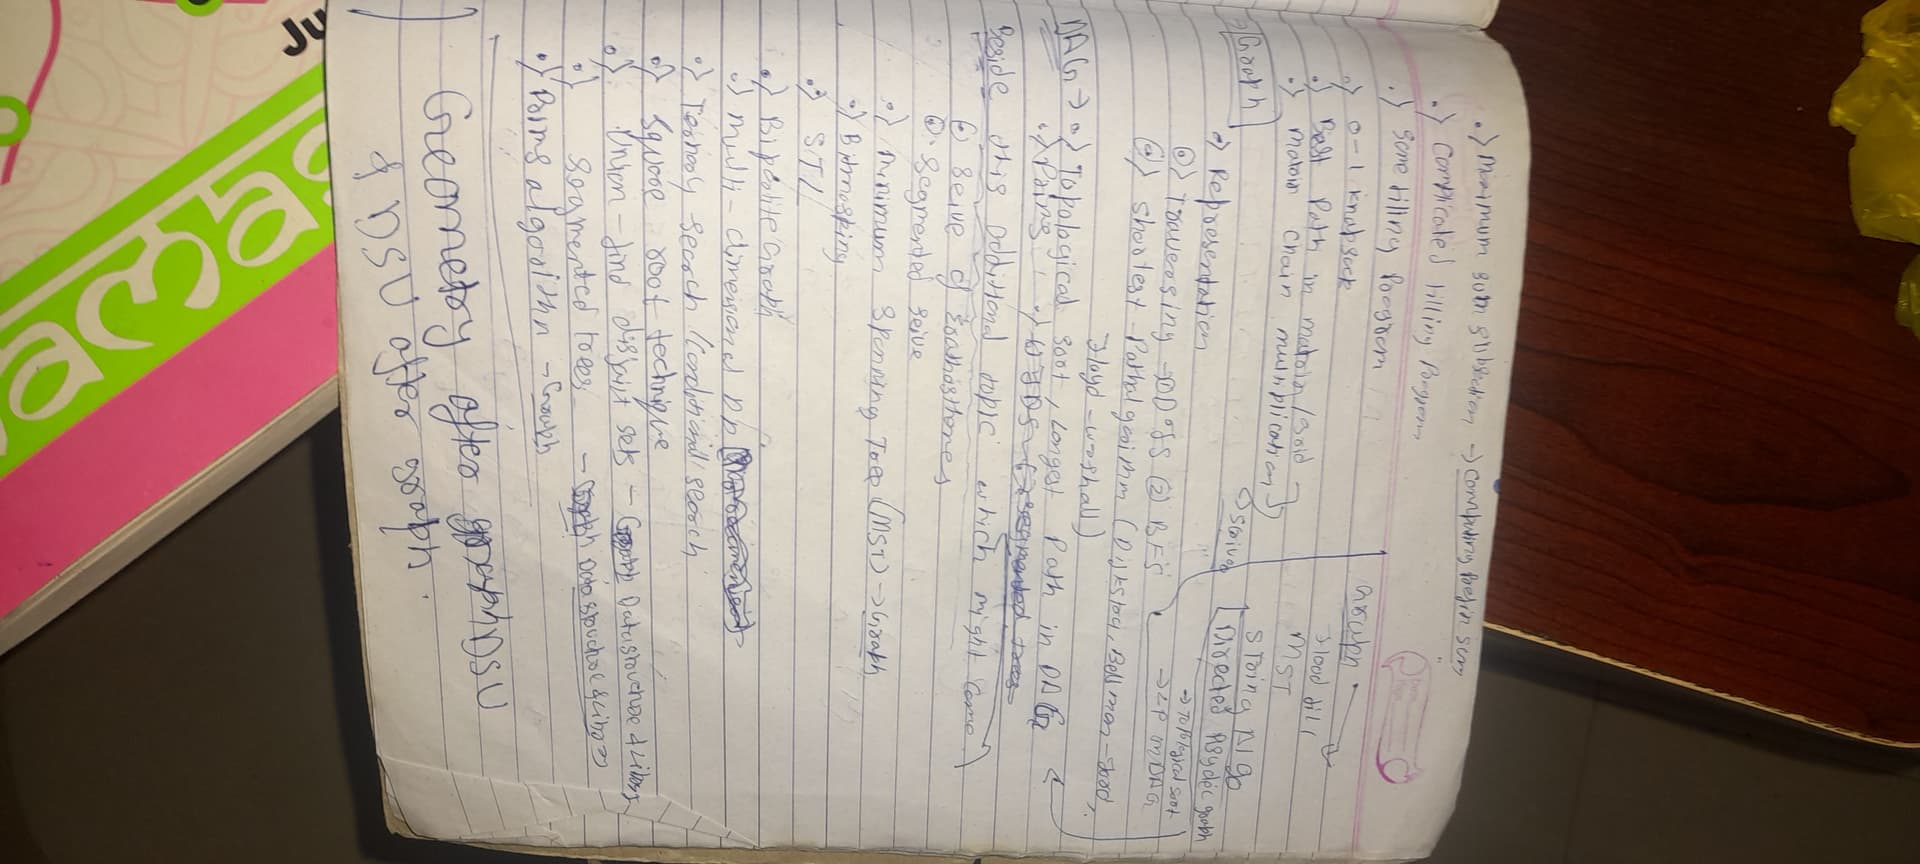 .) Maximum sum subsection → Computing prefix sum
.) Complicated tilling Program
.) Some tilling Program
.) 0-1 knapsack
.) Best Path in matrix/Grid
.) matrix chain multiplication
Graph
Flood fill
MST
String Algo
Directed Asyclic graph
→ Topological sort
→ LP in DAG
→ Graph
→ Representation
.) Traversing → DFS (2) BFS
.) Shortest-Path algorithm (Dijkstra, Bellman-Ford,
Floyd-Warshall)
DAG → .) Topological sort, Longest Path in DAG
.) String
Beside this additional topic which might come
.) Seive of Erathosthenes
.) Segmented Seive
.) Minimum Spanning Tree (MST) → Graph
.) Bitmasking
.) STL
.) Bipartite Graph
.) Multi-dimensional DP
.) Ternary search / Conditional search
.) Square root technique
.) Union-find disjoint sets - Datastructure & Library
.) Segmented trees - Datastructure & Library
.) Prims algorithm - Graph
Geometry after
& DSU after graph.
Ju